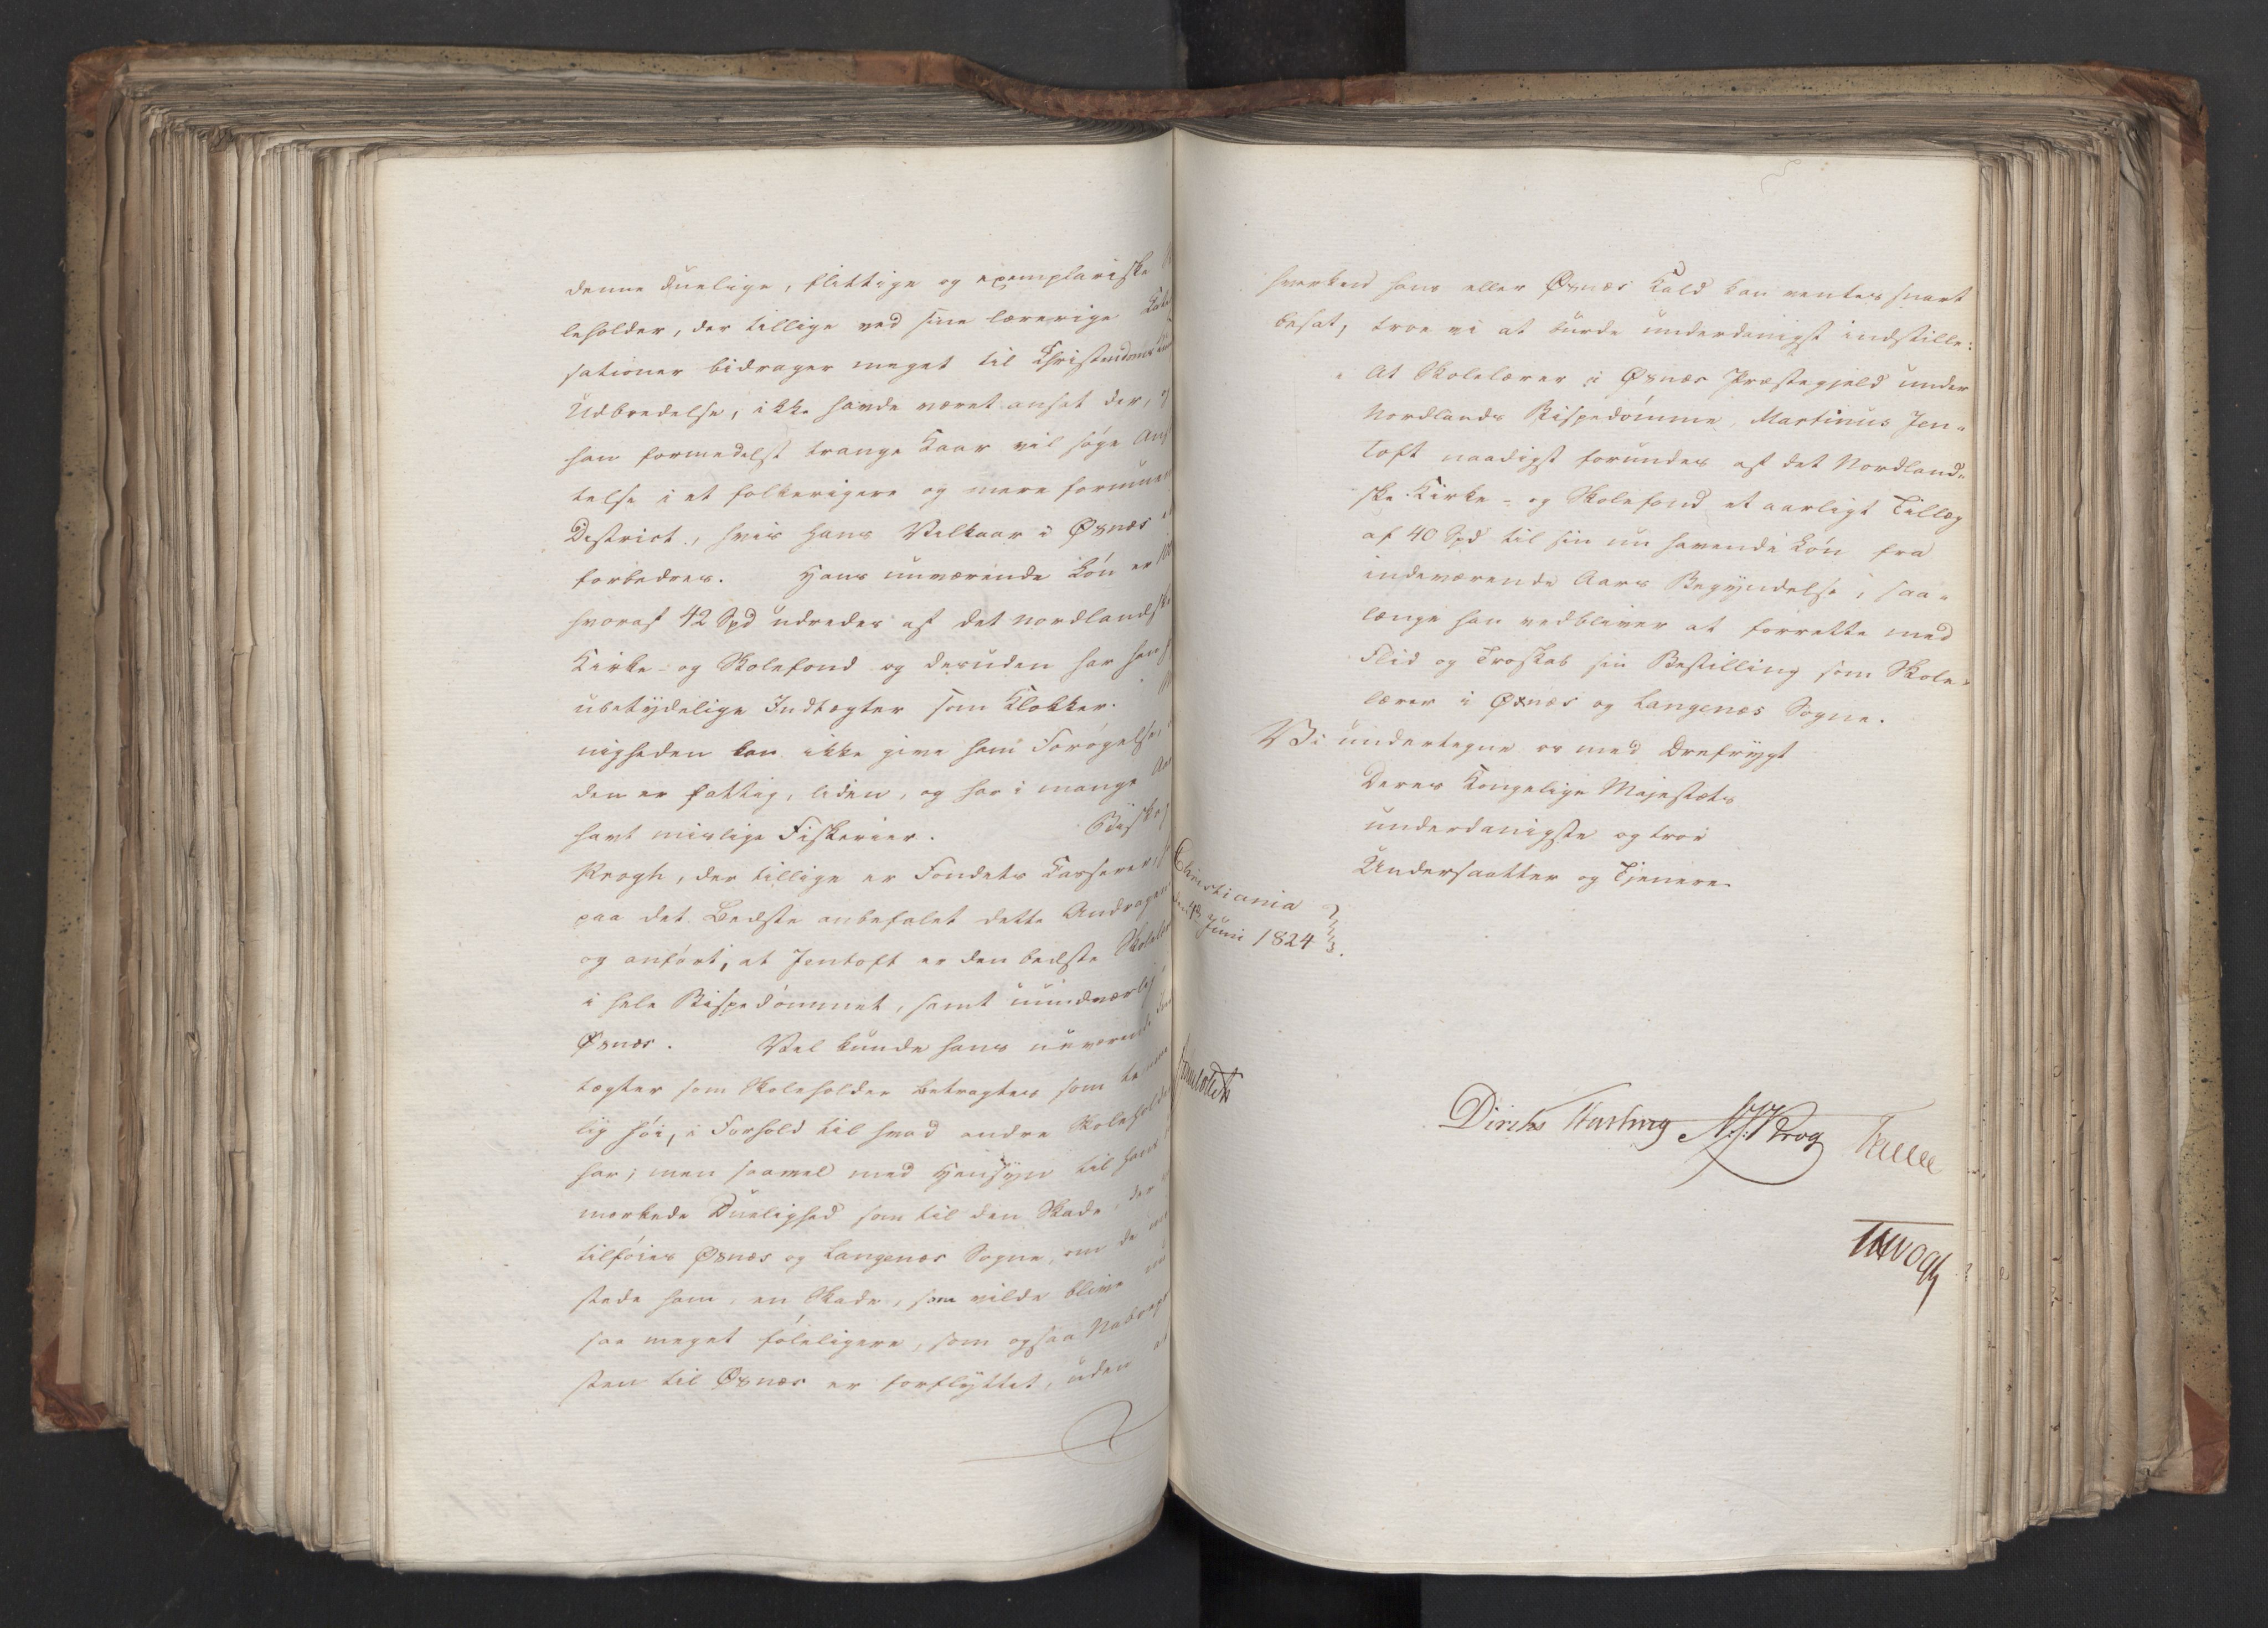 denne duelige, flittige og exemplariske
leholder, der tillige ved sine lærerige Kate
sationer bidrager meget til Christendommens
Udbredelse, ikke havde været ansat der, og
han formedelst trange Kaar vil søge Ans
telse i et folkerigere og mere formuen
District, hvis hans Vilkaar i Øxnæs ei
forbedres. Hans nuværende Løn er 100
hvoraf 42 Spd udredes af det nordlandske
Kirke- og Skolefond og desuden har han
ubetydelige Indtægter som Klokker.
nigheden kan ikke give ham Forøgelse,
den er fattig, liden, og har i mange Aar
havt mislige Fiskerier. Biskop
Krogh, der tillige er Fondets Casserer,
paa det Bedste anbefalet dette Andragende
og anført, at Jentoft er den bedste Skolelær
i hele Bispedømmet, samt uundværlig
Øxnæs. Vel kunde hans nuværende Ind
tægter som Skoleholder betragtes som temme
lig høi, i Forhold til hvad andre Skoleholdere
har; men saavel med Hensyn til hans
mærkede Duelighed som til den Skade, der
tilføies Øxnæs og Langenæs Sogne, om de
stede ham, en Skade, som vilde blive
saa meget føleligere, som ogsaa Nabopræ
sten til Øxnæs er forflyttet, uden at
hverken hans eller Øxnæs Kald kan ventes snart
besat, troe vi at burde underdanigst indstille:
"At Skolelærer i Øxnæs Præstegjeld under
Nordlands Bispedømme, Martinus Jen-
toft naadigst forundes af det Nordland-
ske Kirke- og Skolefond et aarligt Tillæg
af 40 Spd til sin nu havende Løn fra
indeværende Aars Begyndelse, saa-
længe han vedbliver at forrette med
Flid og Troskab sin Bestilling som Skole-
lærer i Øxnæs og Langenæs Sogne.
Vi undertegne os med Ærefrygt
Deres Kongelige Majestæts
underdanigste og troe
Undersaatter og Tjenere
Christiania
den 4de Juni 1824
Diriks Harbnrg N. J. Krog